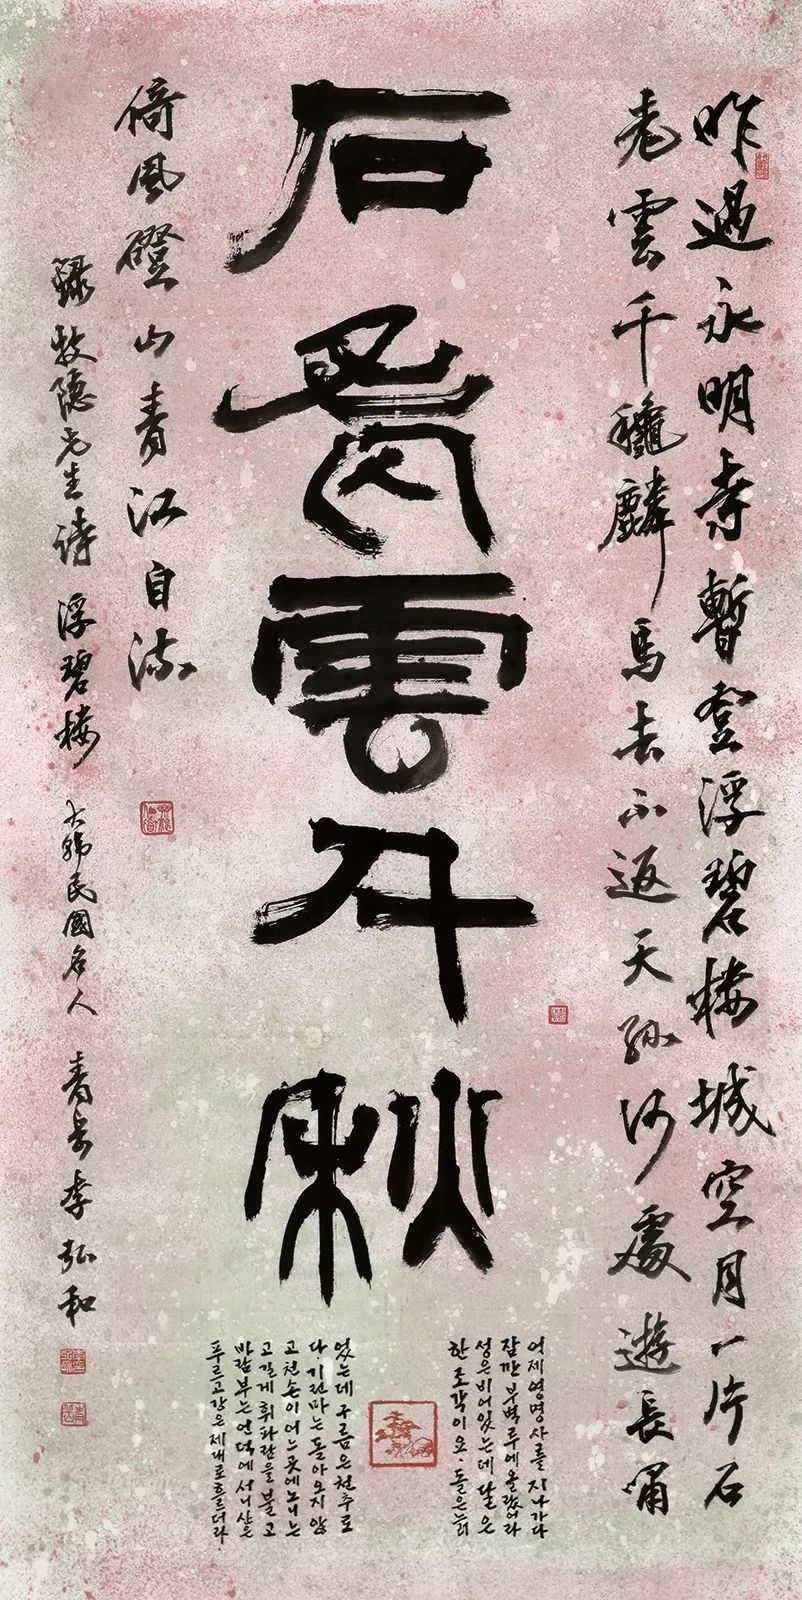 昨過永明寺暫登浮碧樓城空月一片石
老雲千穐麟馬去不返天孫何處遊長嘯
石老雲千秋
倚風磴山青江自流
錄牧隱先生詩 浮碧樓 大韓民國名人 青岳李弘和
어제영명사를 지나가다
잠깐 부벽루에 올랐어라
성은비어있는데 달은
한 조각이요. 돌은늙
었는데 구름은천추로
다. 기린마는 돌아오지 않
고 천손이어느곳에노니는
고길게 휘파람을불고
바람부는언덕에서니산은
푸르고강은제대로흐르더라.